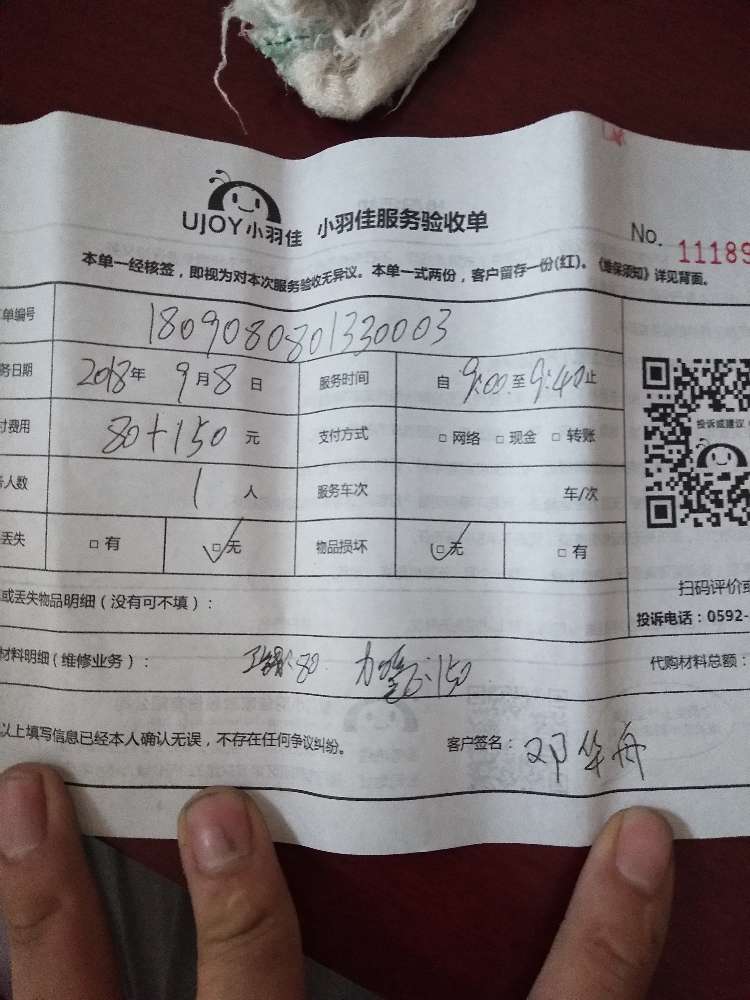 UJOY小羽佳 小羽佳服务验收单 No. 11189
本单一经核签，即视为对本次服务验收无异议。本单一式两份，客户留存一份(红)。《维保须知》详见背面。
单编号 1809080801330003
务日期 2018年 9月8日 服务时间 自 9:00 至 9:40 止
付费用 80+150 元 支付方式 □ 网络 □ 现金 □ 转账
投诉或建议
人数 1 人 服务车次 车/次
丢失 □ 有 □ 无 物品损坏 □ 无 □ 有
或丢失物品明细（没有可不填）：
扫码评价或
投诉电话：0592-
材料明细（维修业务）： 80 150 代购材料总额：
以上填写信息已经本人确认无误，不存在任何争议纠纷。 客户签名：邓华舟